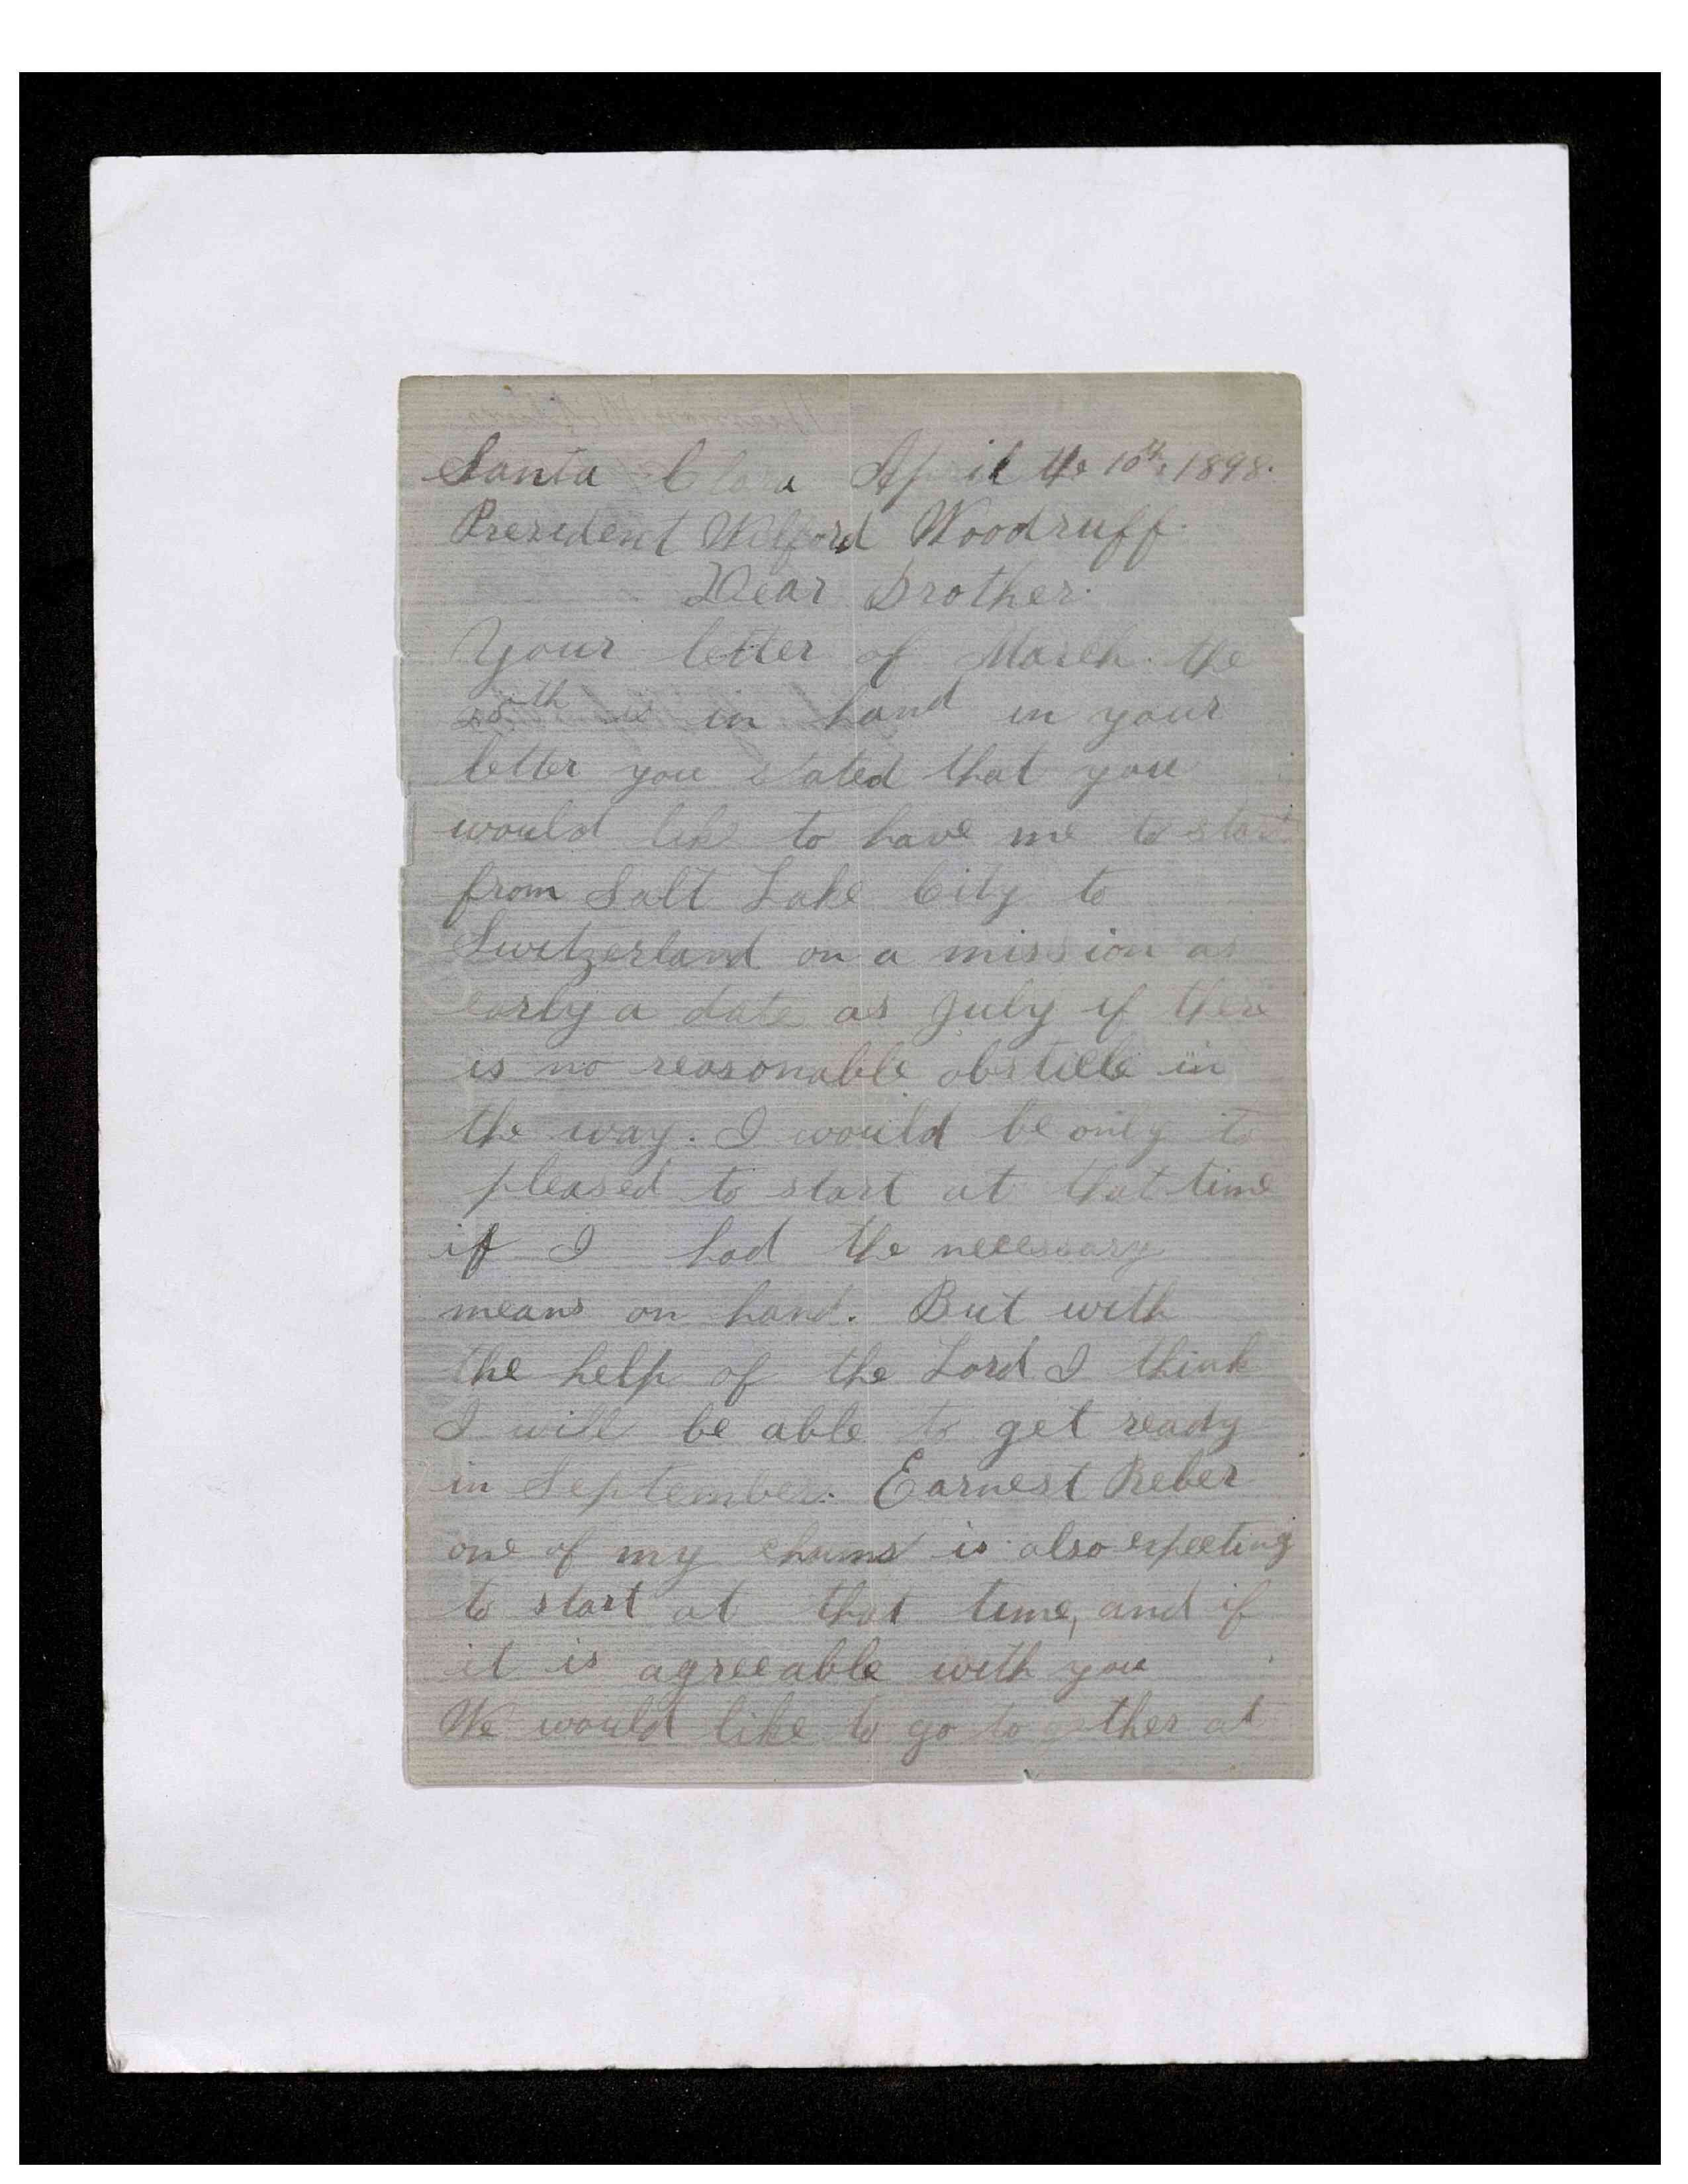 Santa Clara April the 10th, 1898.
President Wilford Woodruff.
Dear Brother.
Your letter of March. the
25th is in hand in your
letter you stated that you
would like to have me to start
from Salt Lake City to
Switzerland on a mission as
early a date as July if there
is no reasonable obsticle in
the way. I would be only to
pleased to start at that time
if I had the necessary
means on hand. But with
the help of the Lord I think
I will be able to get ready
in September. Earnest Reber
one of my chums is also expecting
to start at that time, and if
it is agreeable with you
We would like to go to gether at